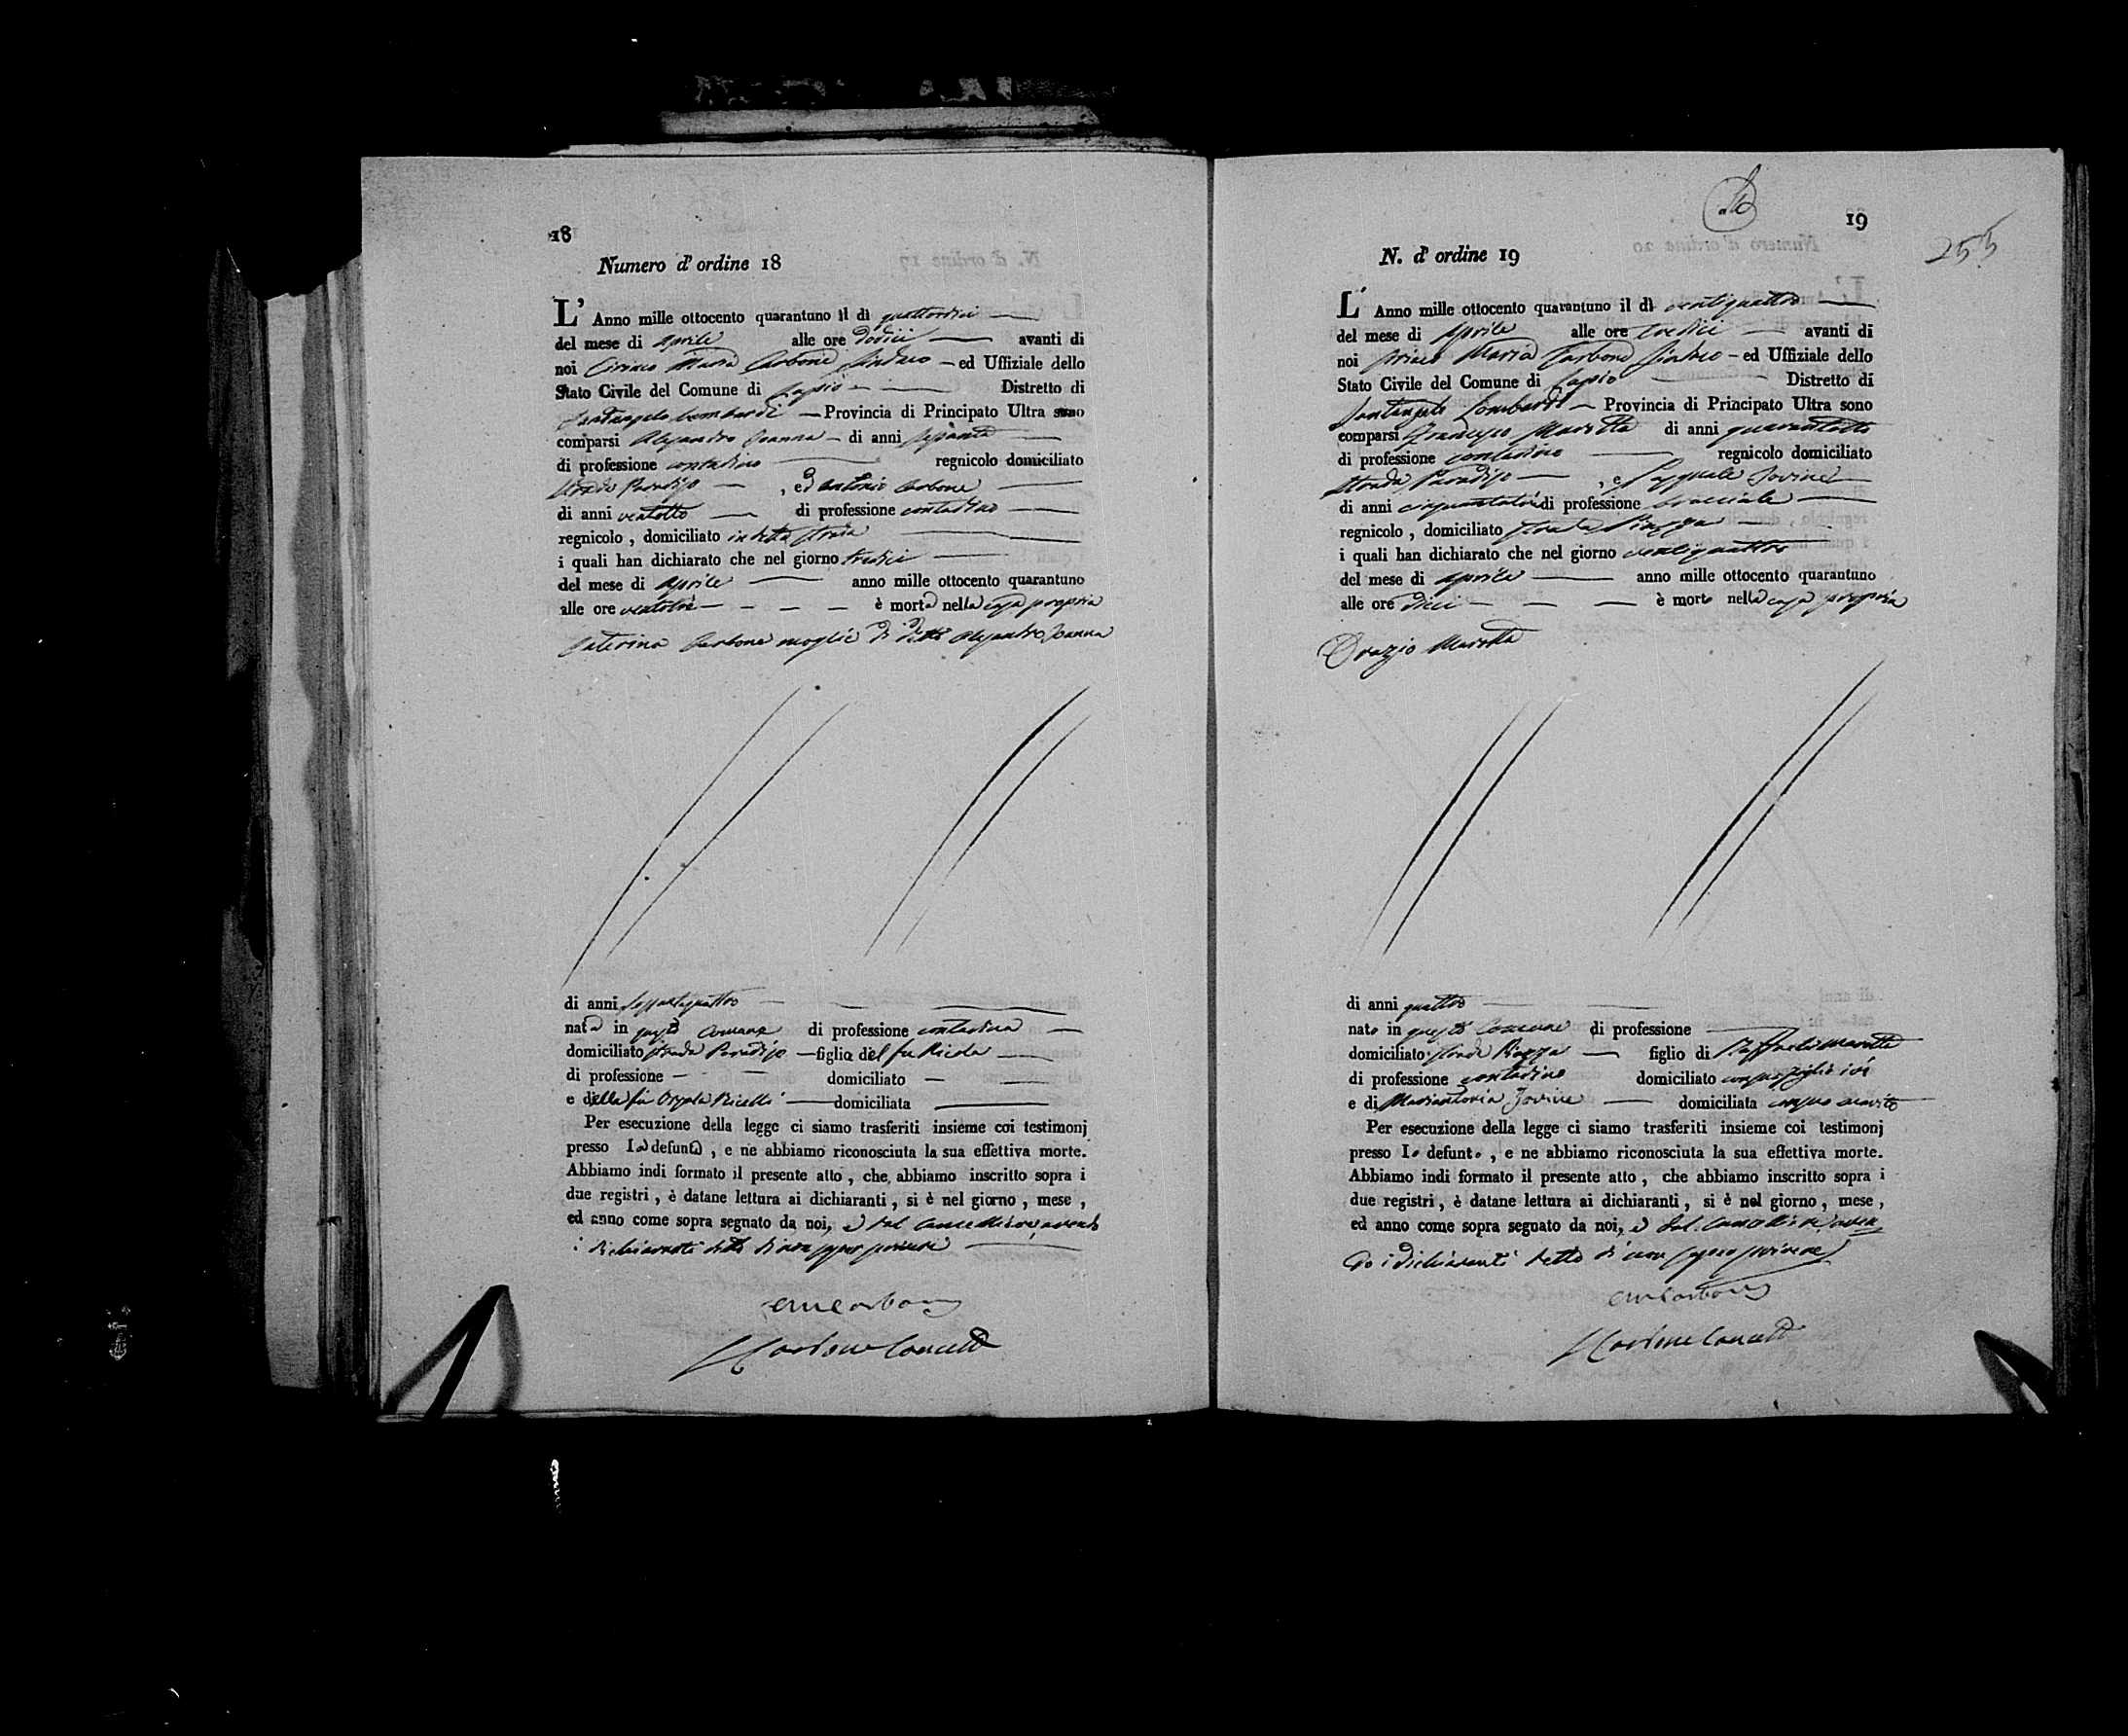 18
Numero d' ordine 18
L' Anno mille ottocento quarantuno il dì quattordici
del mese di Aprile alle ore dodici avanti di
noi Ciriaco Maria Carbone Sindaco ed Uffiziale dello
Stato Civile del Comune di Distretto di
Santangelo Lombardi Provincia di Principato Ultra sono
comparsi Alessandro Ioanna di anni sessanta
di professione contadino regnicolo domiciliato
strada Paradiso , ed Antonio Carbone
di anni ventotto di professione contadino
regnicolo , domiciliato in detta strada
i quali han dichiarato che nel giorno tredici
del mese di Aprile anno mille ottocento quarantuno
alle ore ventotrè è morta nella casa propria
Caterina Carbone moglie di detto Alessandro Ioanna
di anni
nata in questo Comune di professione contadina
domiciliato strada Paradiso figlia del fu Nicola
di professione domiciliato
e della fu Orsola domiciliata
Per esecuzione della legge ci siamo trasferiti insieme coi testimonj
presso la defunta , e ne abbiamo riconosciuta la sua effettiva morte.
Abbiamo indi formato il presente atto , che abbiamo inscritto sopra i
due registri , è datane lettura ai dichiaranti , si è nel giorno , mese ,
ed anno come sopra segnato da noi, e dal Cancelliere, avendo
i dichiaranti detto di non sapere scrivere
CMCarbone
Carbone Cancell
19
255
N. d' ordine 19
L' Anno mille ottocento quarantuno il dì ventiquattro
del mese di Aprile alle ore tredici avanti di
noi Ciriaco Maria Carbone Sindaco ed Uffiziale dello
Stato Civile del Comune di Distretto di
Santangelo Lombardi Provincia di Principato Ultra sono
comparsi Francesco Marotta di anni quarantotto
di professione contadino regnicolo domiciliato
strada Paradiso , e Pasquale Iovine
di anni cinquantatrè di professione bracciale
regnicolo , domiciliato strada Piazza
i quali han dichiarato che nel giorno ventiquattro
del mese di Aprile anno mille ottocento quarantuno
alle ore dieci è morto nella casa propria
Orazio Marotta
di anni quattro
nato in questo Comune di professione
domiciliato strada Piazza figlio di Raffaele Marotta
di professione contadino domiciliato con suo figlio ivi
e di Mariantonia Iovine domiciliata con suo marito
Per esecuzione della legge ci siamo trasferiti insieme coi testimonj
presso lo defunto , e ne abbiamo riconosciuta la sua effettiva morte.
Abbiamo indi formato il presente atto , che abbiamo inscritto sopra i
due registri , è datane lettura ai dichiaranti , si è nel giorno , mese ,
ed anno come sopra segnato da noi, e dal Cancelliere aven
do i dichiaranti detto di non sapere scrivere
CMCarbone
Carbone Cancell